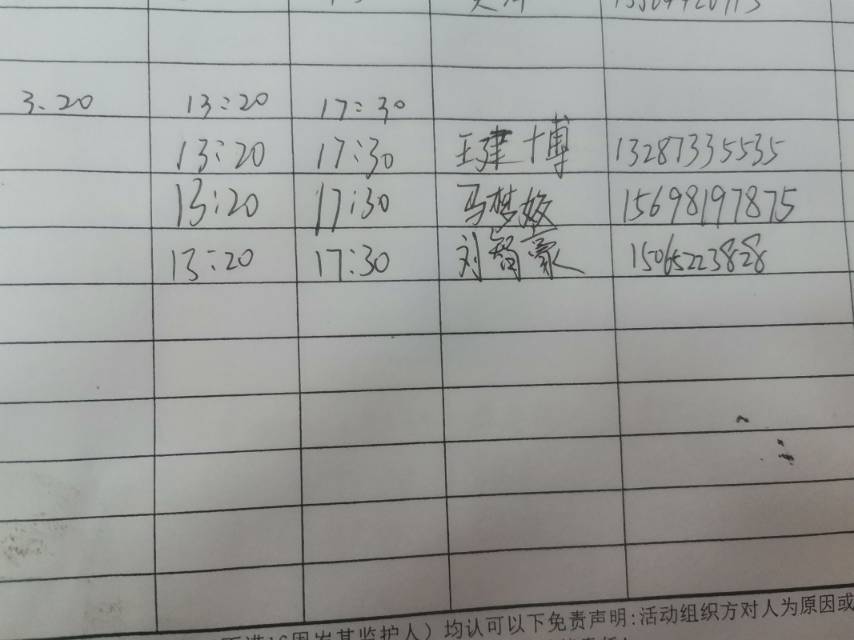 3.20 13:20 17:30
13:20 17:30 王建博 13287335535
13:20 17:30 马梦姣 15698197875
13:20 17:30 刘智豪 15065223828
周岁其监护人）均认可以下免责声明:活动组织方对人为原因或